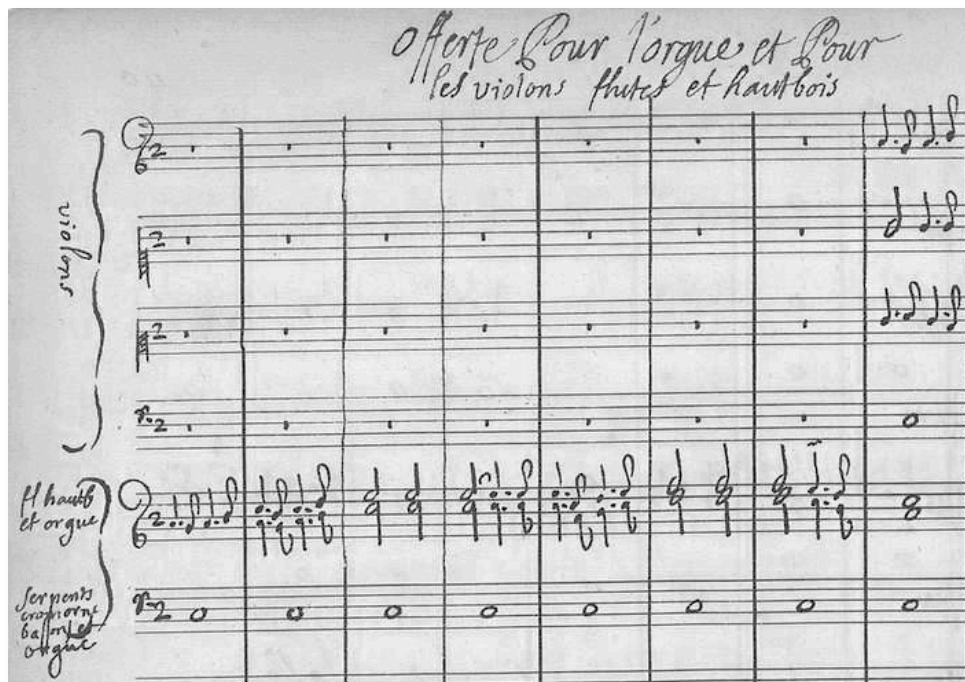 Offerte Pour l'orgue et Pour
les violons flutes et hautbois
violons
fl hautb
et orgue
Serpents
cromorne
basson et
orgue